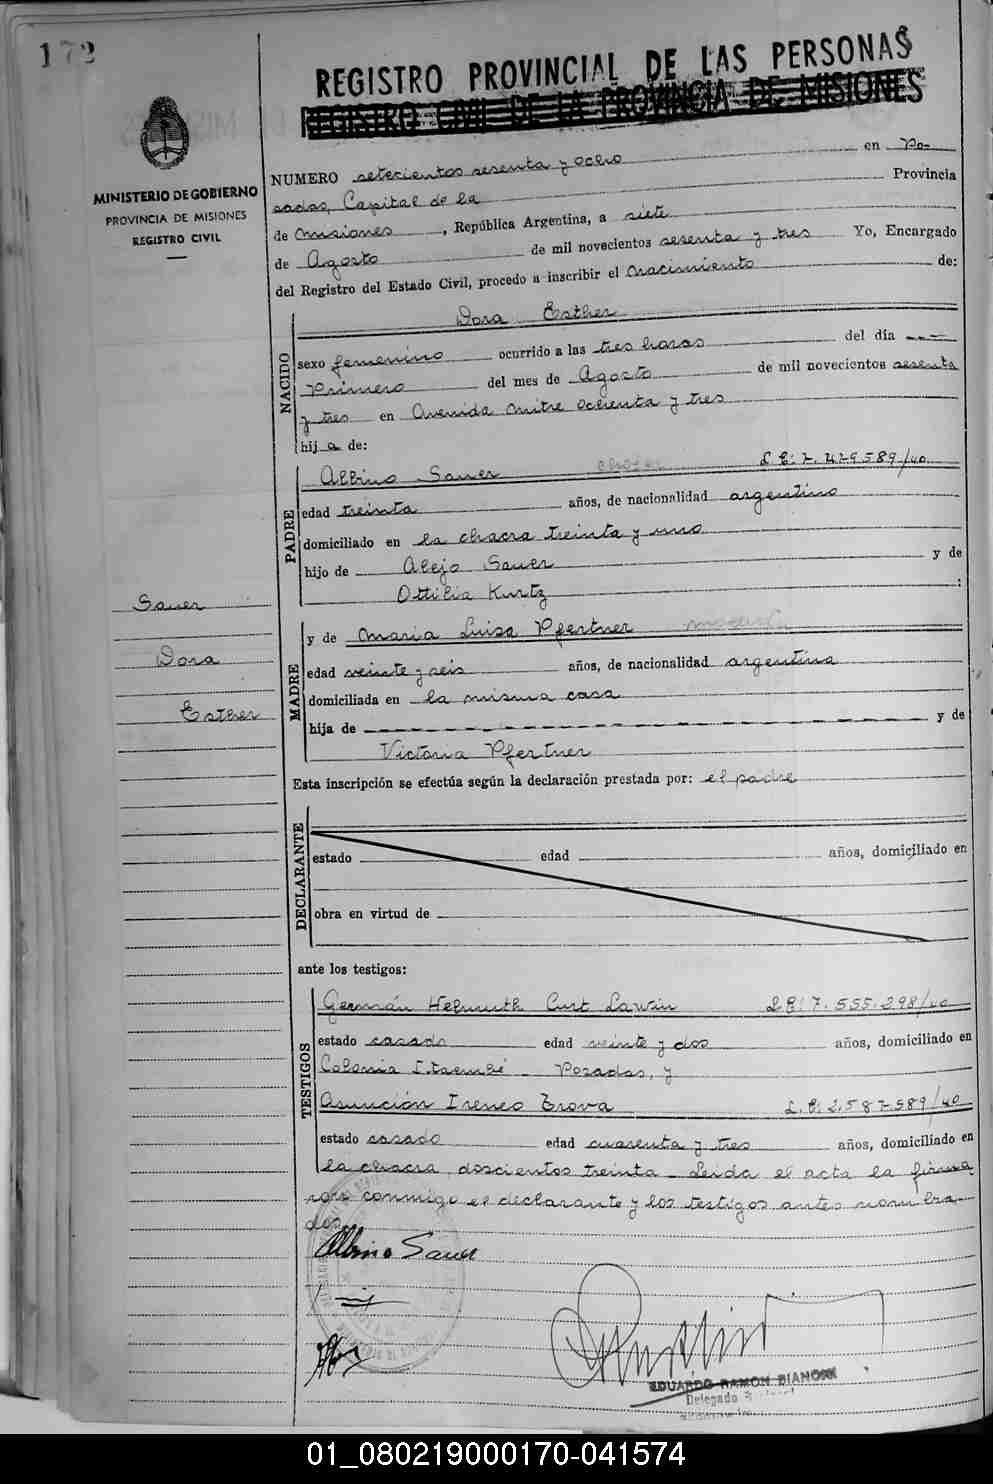 172
REGISTRO PROVINCIAL DE LAS PERSONAS
REGISTRO CIVIL DE LA PROVINCIA DE MISIONES
MINISTERIO DE GOBIERNO
PROVINCIA DE MISIONES
REGISTRO CIVIL
NUMERO setecientos sesenta y ocho en Po-
sadas, Capital de la Provincia
de Misiones, República Argentina, a siete
de Agosto de mil novecientos sesenta y tres Yo, Encargado
del Registro del Estado Civil, procedo a inscribir el nacimiento de:
NACIDO
Dora Esther
sexo femenino ocurrido a las tres horas del día
Primero del mes de Agosto de mil novecientos sesenta
y tres en Avenida Mitre ochenta y tres
hija de:
PADRE
Albino Sauer chofer L.E: 7.479.589/40
edad treinta años, de nacionalidad argentino
domiciliado en la chacra treinta y uno
hijo de Alejo Sauer y de
Ottilia Kurtz :
Sauer
Dora
Esther
MADRE
y de Maria Luisa Pfertner
edad veinte y seis años, de nacionalidad argentina
domiciliada en la misma casa
hija de y de
Victoria Pfertner
Esta inscripción se efectúa según la declaración prestada por: el padre
DECLARANTE
estado edad años, domiciliado en
obra en virtud de
ante los testigos:
TESTIGOS
Germán Helmuth Curt Lawin L.E: 7.555.298/40
estado casado edad veinte y dos años, domiciliado en
Colonia Itaembé - Posadas, y
Asunción Ireneo Trova L.E: 2.587.589/40
estado casado edad cuarenta y tres años, domiciliado en
la chacra doscientos treinta - Leida el acta la firma
ron conmigo el declarante y los testigos antes nombra-
dos
Albino Sauer
EDUARDO RAMON BIANCHI
Delegado
01_080219000170-041574